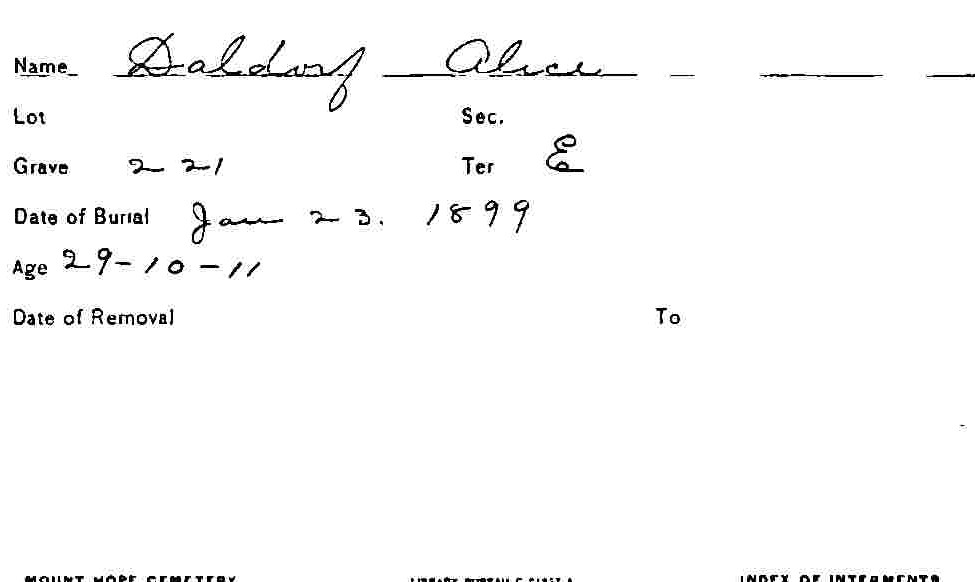 Name Daldorf Alice
Lot Sec.
Grave 221 Ter E
Date of Burial Jan 23. 1899
Age 29-10-11
Date of Removal To
MOUNT HOPE CEMETERY LIBRARY BUREAU INDEX OF INTERMENTS